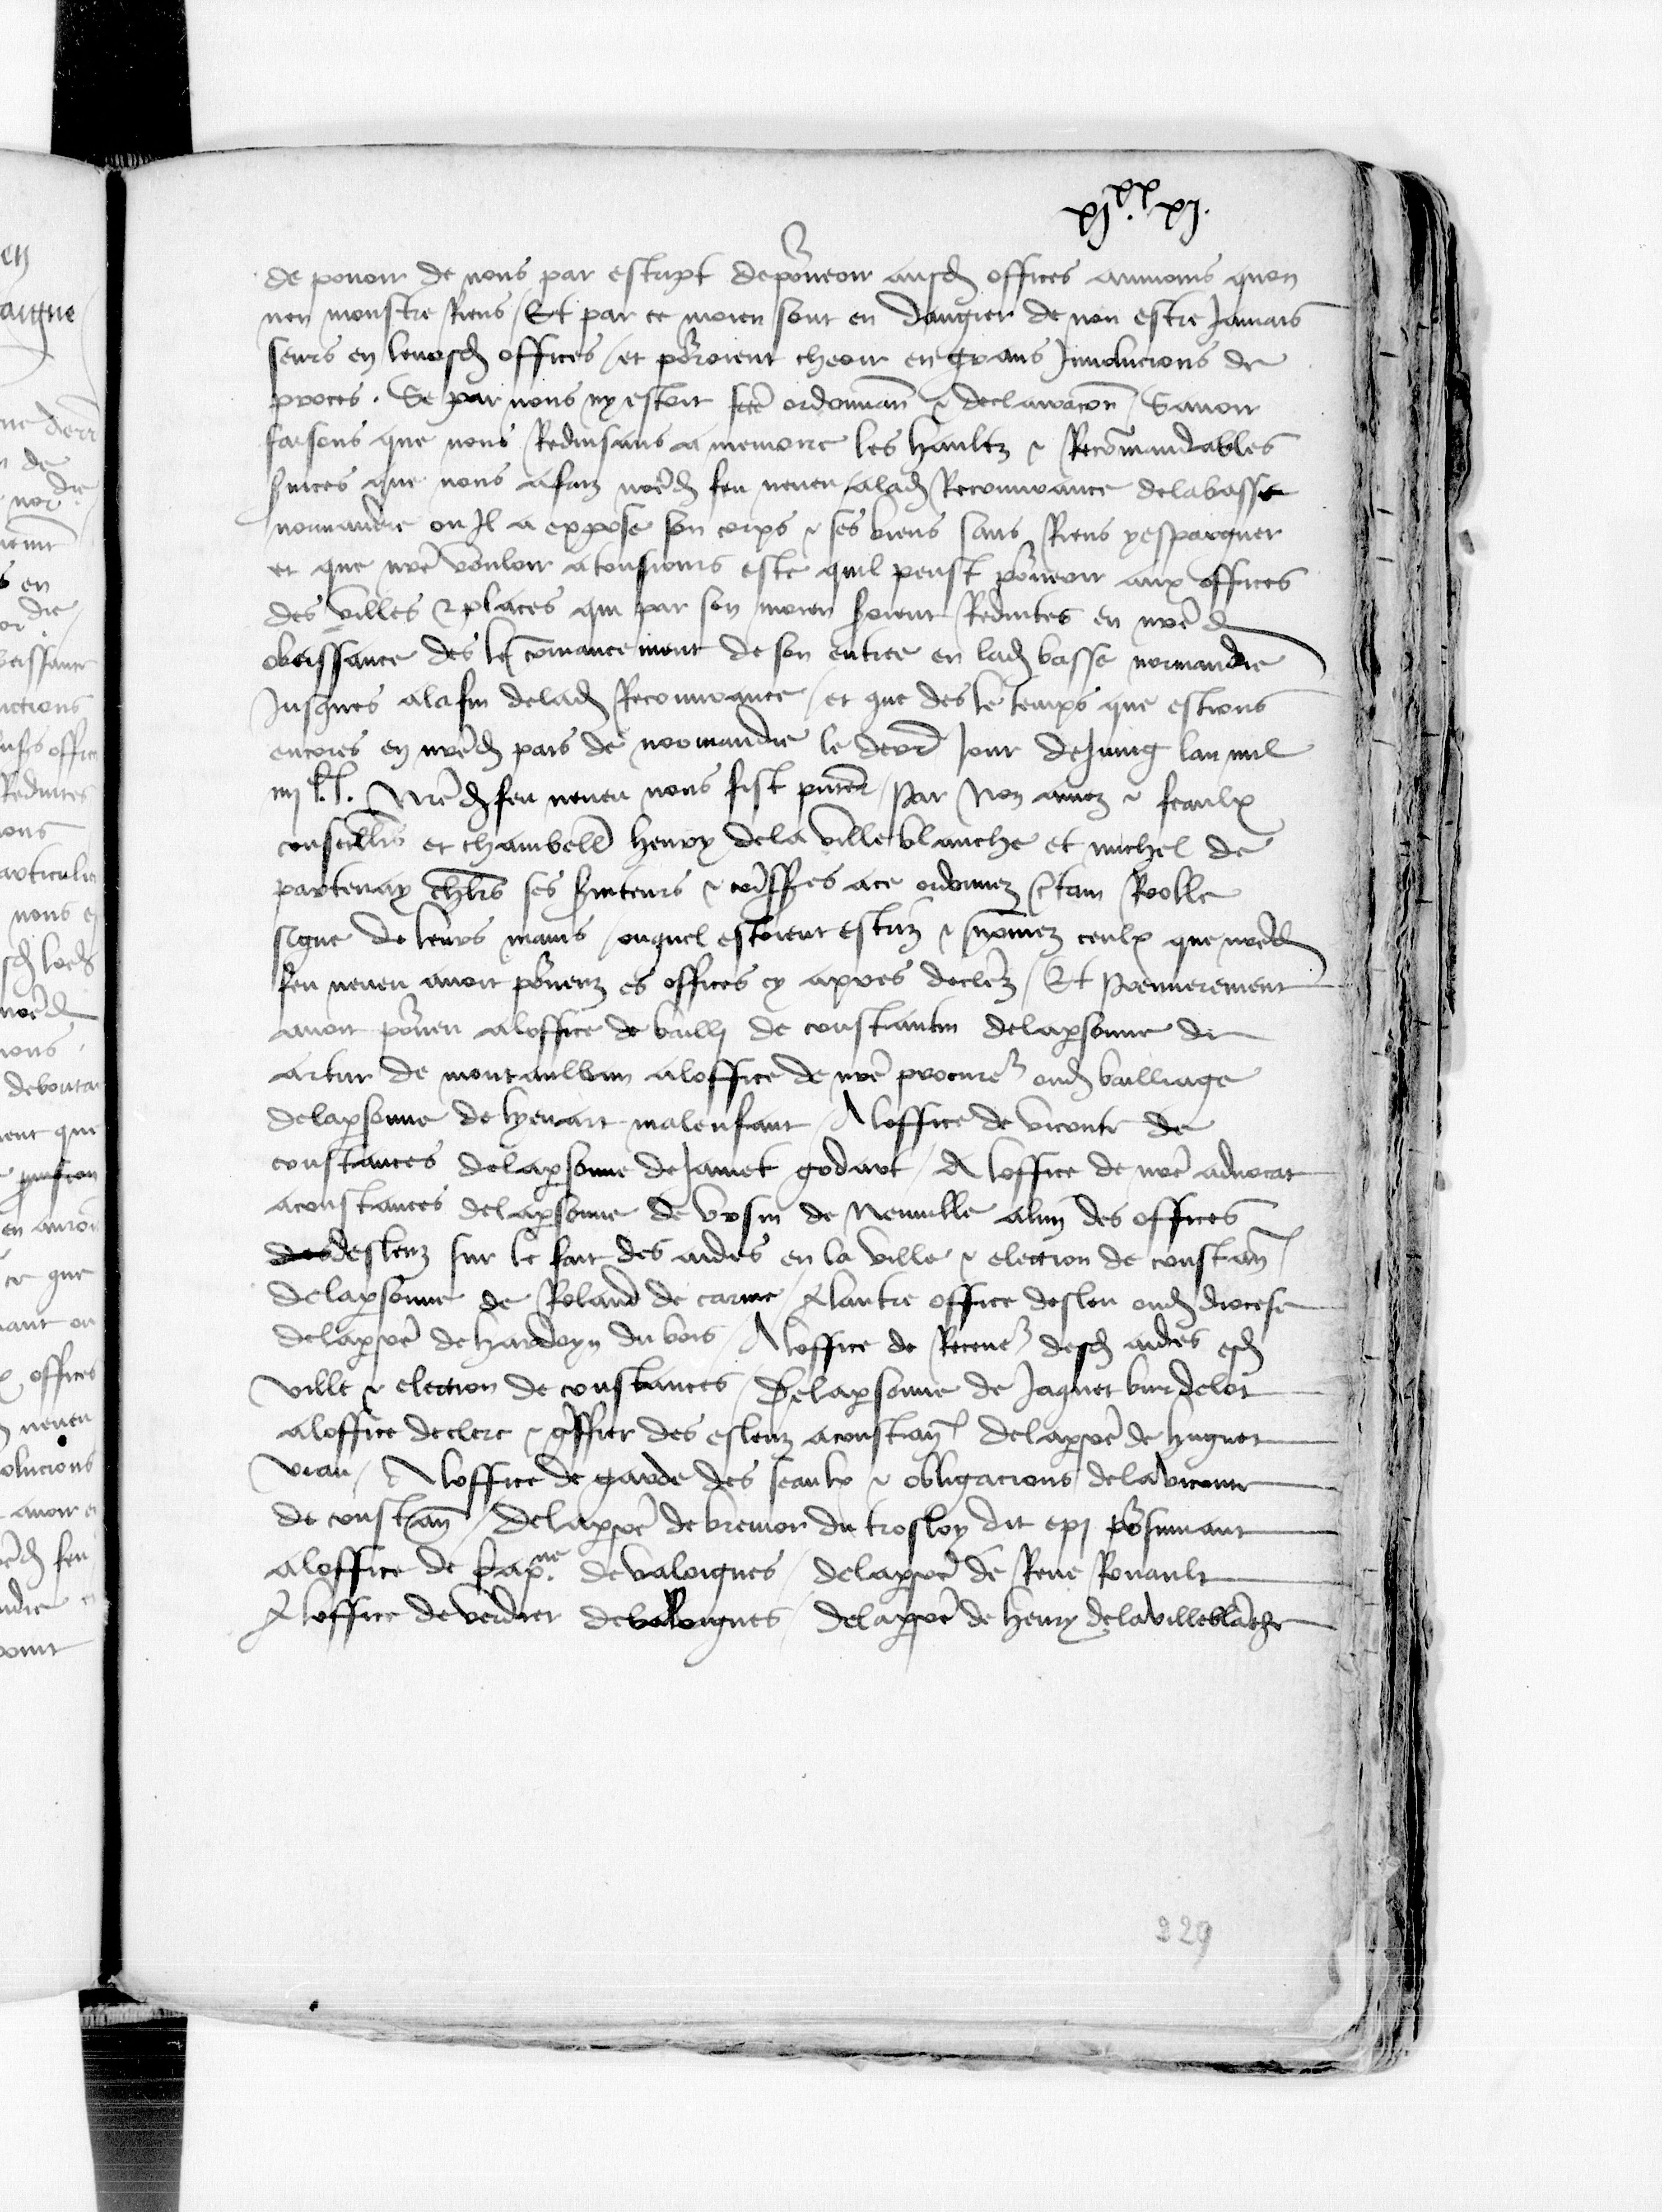 xj.xx xj.
de povoir de nous par escript de po͛veoir ausd offices aumoins quon
nen monstre Riens / Et par ce moien sont en dangier de non estre Jamais
seurs en leursd offices / et po͛roient cheoir en grans Involucions de
proces . Se par nous ny estoit sur ce ordonnan & declaracon / Savoir
faisons que nous Reduisans a memoire les haultz & Recōmandables
s͛vices que nous a faiz nr̃ed feu neveu / a lad Recouvrance de la basse
normandie ou Il a expose son corps & ses biens sans Riens y espargner
et que nr̃e vouloir a tousiours este quil peust po͛veoir aux offices
des villes & places qui par son moien seroient Reduites en nr̃ed
obeissance des le cōmancement de son entree en lad basse normandie
Jusques a la fin de lad Recouvrance / et que des le temps que estions
encores en nr̃ed pais de normandie le derr̃ Jour de Juing lan mil
iiij c. l. Nr̃ed feu neveu nous fist pn̄ter / Par Noz amez & feaulx
conseillrs et chambell henry de la ville blanche et michel de
partenay chlr̃s ses s͛viteurs & comissres a ce ordonnez c͛tain Rolle
signe de leurs mains / ouquel estoient escriz & nōmez ceulx que nr̃ed
feu neveu avoit po͛veuz es offices cy apres declerez / Et Premierement
avoit po͛veu a loffice de bailli de constantin de la p̱sonne de
artur de montauban a loffice de nr̃e procure͛ oud bailliage
de la p̱sonne de lyenart malenfant / A loffice de viconte de
constances de la p̱sonne de Jamet godart / A loffice de nr̃e advocat
a constances de la p̱sonne de Ursin de Neuville a lun des offices
des desleuz sur le fait des aides en la ville & election de constan
de la p̱sonne de Roland de carne / A lautre office desleu oud diocese
de la p̱sōe de hardoyn du bois / A loffice de Receve͛ desd aides esd
ville & election de constances / De la p̱sonne de Jaquet burdelot
a loffice de clerc & greffier des esleuz a constan de la p̱sōe de huguet
vian / A loffice de garde des seaulx & obligacions de la viconte
de constan / De la p̱sōe de bremor du trosloy dit epi po͛suivant
a loffice de cap.ne de valoignes / de la p̱sōe de Rene Rouault
A loffice de verdier de valoignes / de la p̱sōe de henry de la villeblāche
229